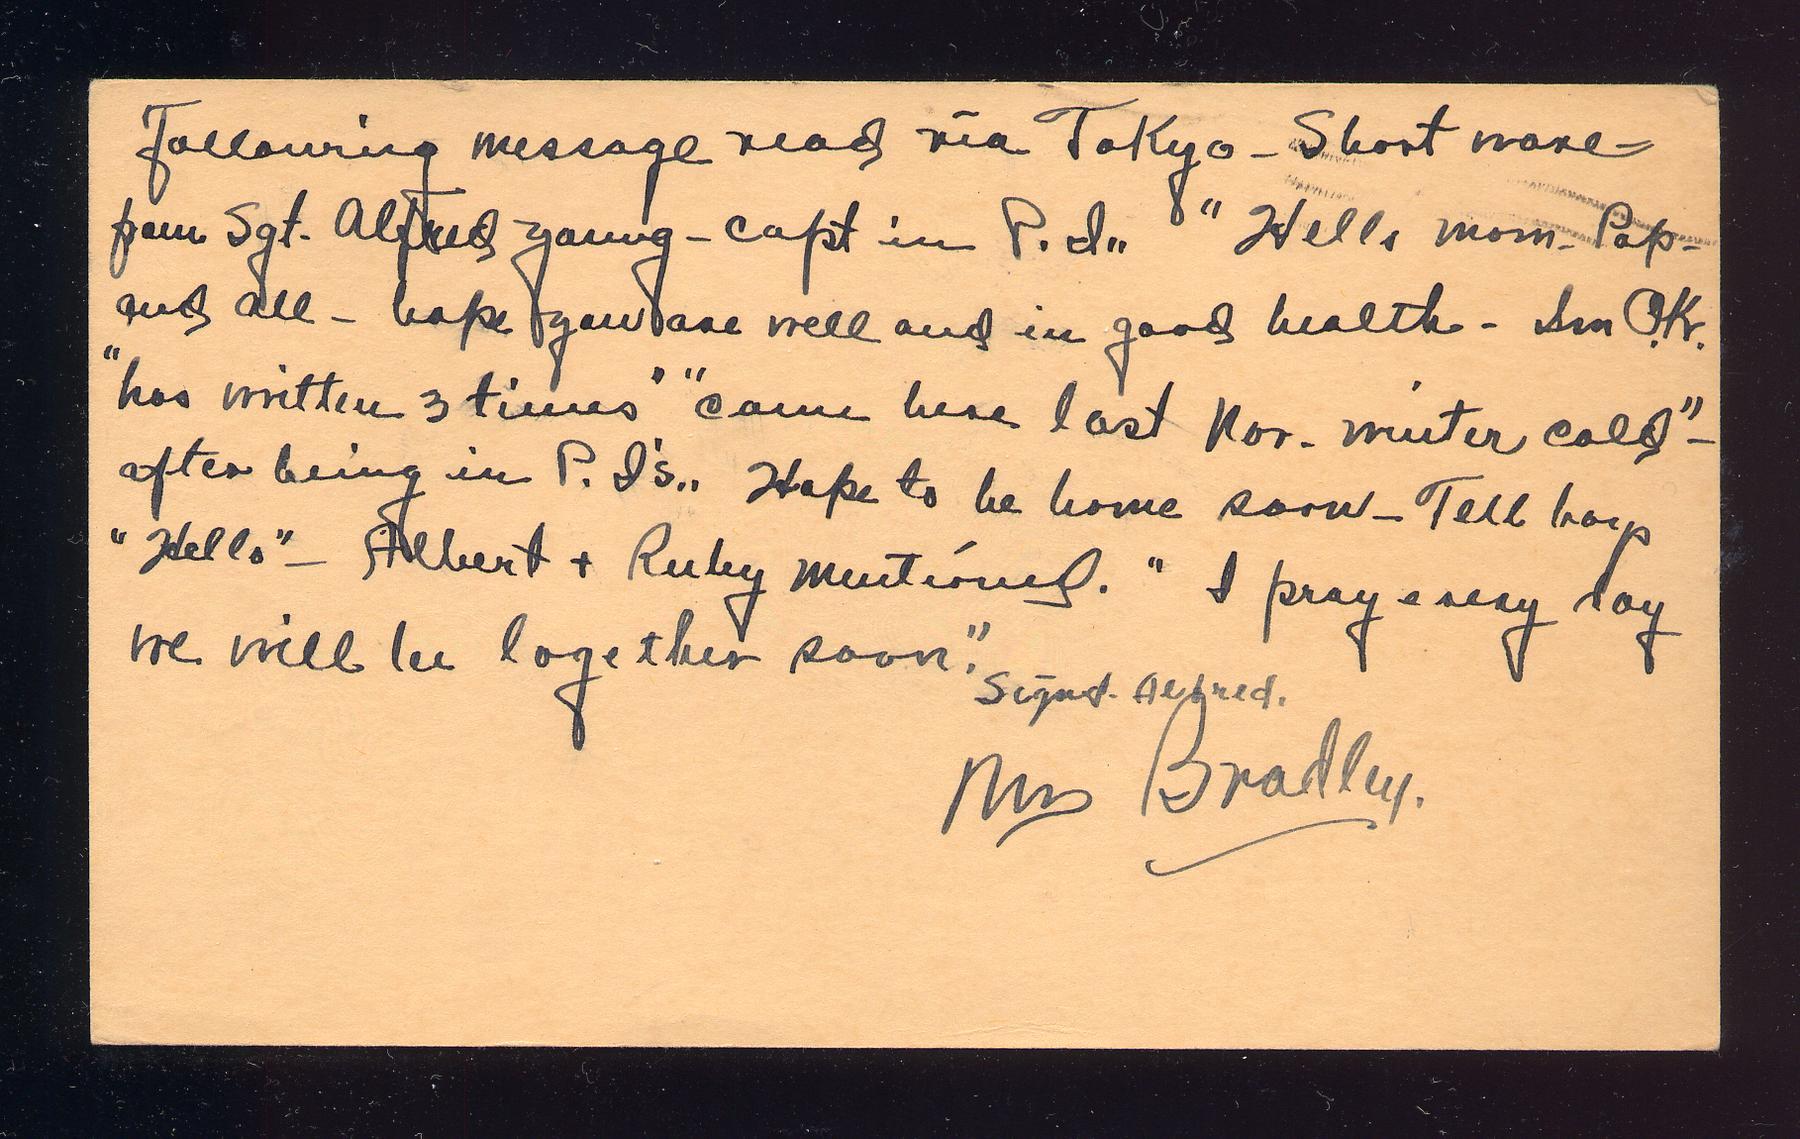 Following message read via Tokyo - Short wave -
from Sgt. Alfred Young - capt in P.I.. " Hello mom - Pap -
and all - hope you are well and in good health - Am O.K.
"has written 3 times" "came here last Nov. winter cold" -
after being in P.I's.. Hope to be home soon - Tell
"Hello" - Albert + Ruby mentioned. " I pray every day
we will be together soon."
Signd. Alfred.
Mrs Bradley.